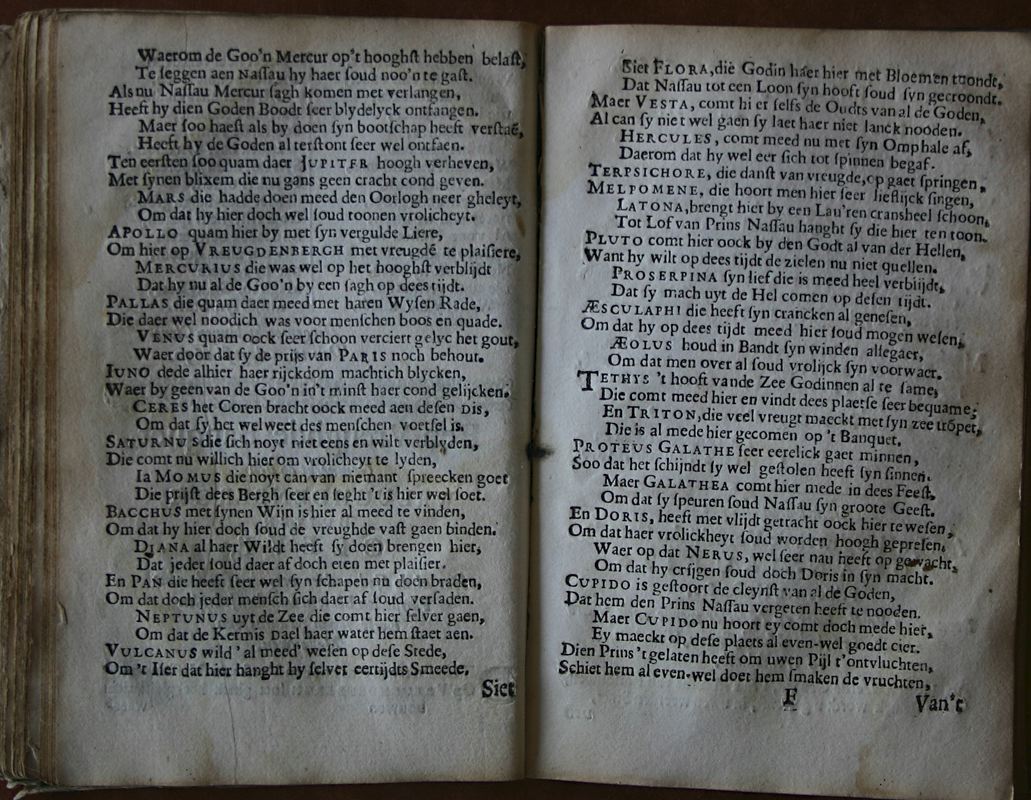 Waerom de Goo'n Mercur op't hooghſt hebben belaſt,
Te ſeggen aen Naſſau hy haer ſoud noo'n te gaſt.
Als nu Naſſau Mercur ſagh komen met verlangen,
Heeft hy dien Goden Boodt ſeer blydelyck ontfangen.
Maer ſoo haeſt als hy doen ſyn bootſchap heeft verſtaē,
Heeft hy de Goden al terſtont ſeer wel ontfaen.
Ten eerſten ſoo quam daer JUPITER hoogh verheven,
Met ſynen blixem die nu gans geen cracht cond geven.
MARS die hadde doen meed den Oorlogh neer gheleyt,
Om dat hy hier doch wel ſoud toonen vrolicheyt.
APOLLO quam hier by met ſyn vergulde Liere,
Om hier op VREUGDENBERGH met vreugdē te plaiſiere,
MERCURIUS die was wel op het hooghſt verblijdt
Dat hy nu al de Goo'n by een ſagh op dees tijdt.
PALLAS die quam daer meed met haren Wyſen Rade,
Die daer wel noodich was voor menſchen boos en quade.
VENUS quam oock ſeer ſchoon verciert gelyc het gout,
Waer door dat ſy de prijs van PARIS noch behout.
IUNO dede alhier haer rijckdom machtich blycken,
Waer by geen van de Goo'n in't minſt haer cond gelijcken.
CERES het Coren bracht oock meed aen deſen DIS,
Om dat ſy het wel weet des menſchen voetſel is.
SATURNUS die ſich noyt niet eens en wilt verblyden,
Die comt nu willich hier om vrolicheyt te lyden,
Ia MOMUS die noyt can van niemant ſpreecken goet
Die prijſt dees Bergh ſeer en ſeght 't is hier wel ſoet.
BACCHUS met ſynen Wijn is hier al meed te vinden,
Om dat hy hier doch ſoud de vreughde vaſt gaen binden.
DIANA al haer Wildt heeft ſy doen brengen hier,
Dat jeder ſoud daer af doch eten met plaiſier.
En PAN die heeft ſeer wel ſyn ſchapen nu doen braden,
Om dat doch jeder menſch ſich daer af ſoud verſaden.
NEPTUNUS uyt de Zee die comt hier ſelver gaen,
Om dat de Kermis DAEL haer water hem ſtaet aen.
VULCANUS wild' al meed' weſen op deſe Stede,
Om 't Iſer dat hier hanght hy ſelver eertijdts Smeede.
Siet
Siet FLORA, die Godin haer hier met Bloemen toondt,
Dat Naſſau tot een Loon ſyn hooft ſoud ſyn gecroondt.
Maer VESTA, comt hier ſelfs de Oudts van al de Goden,
Al can ſy niet wel gaen ſy laet haer niet lanck nooden.
HERCULES, comt meed nu met ſyn Omphale af,
Daerom dat hy wel eer ſich tot ſpinnen begaf.
TERPSICHORE, die danſt van vreugde, op gaet ſpringen,
MELPOMENE, die hoort men hier ſeer lieflijck ſingen,
LATONA, brengt hier by een Lau'ren crans heel ſchoon,
Tot Lof van Prins Naſſau hanght ſy die hier ten toon.
PLUTO comt hier oock by den Godt al van der Hellen,
Want hy wilt op dees tijdt de zielen nu niet quellen.
PROSERPINA ſyn lief die is meed heel verblijdt,
Dat ſy mach uyt de Hel comen op deſen tijdt.
ÆSCULAPHI die heeft ſyn crancken al geneſen,
Om dat hy op dees tijdt meed hier ſoud mogen weſen,
ÆOLUS houd in Bandt ſyn winden alſegaer,
Om dat men over al ſoud vrolijck ſyn voorwaer.
TETHYS 't hooft vande Zee Godinnen al te ſame,
Die comt meed hier en vindt dees plaetſe ſeer bequame;
En TRITON, die veel vreugt maeckt met ſyn zee trōpet,
Die is al mede hier gecomen op 't Banquet,
PROTEUS GALATHE ſeer eerelick gaet minnen,
Soo dat het ſchijndt ſy wel geſtolen heeft ſyn ſinnen.
Maer GALATHEA comt hier mede in dees Feeſt,
Om dat ſy ſpeuren ſoud Naſſau ſyn groote Geeſt.
En DORIS, heeft met vlijdt getracht oock hier te weſen,
Om dat haer vrolickheyt ſoud worden hoogh gepreſen,
Waer op dat NERUS, wel ſeer nau heeft op gewacht,
Om dat hy crijgen ſoud doch Doris in ſyn macht.
CUPIDO is geſtoort de cleynſt van al de Goden,
Dat hem den Prins Naſſau vergeten heeft te nooden.
Maer CUPIDO nu hoort ey comt doch mede hier,
Ey maeckt op deſe plaets al even-wel goedt cier.
Dien Prins 't gelaten heeft om uwen Pijl t'ontvluchten,
Schiet hem al even-wel doet hem ſmaken de vruchten,
F
Van't